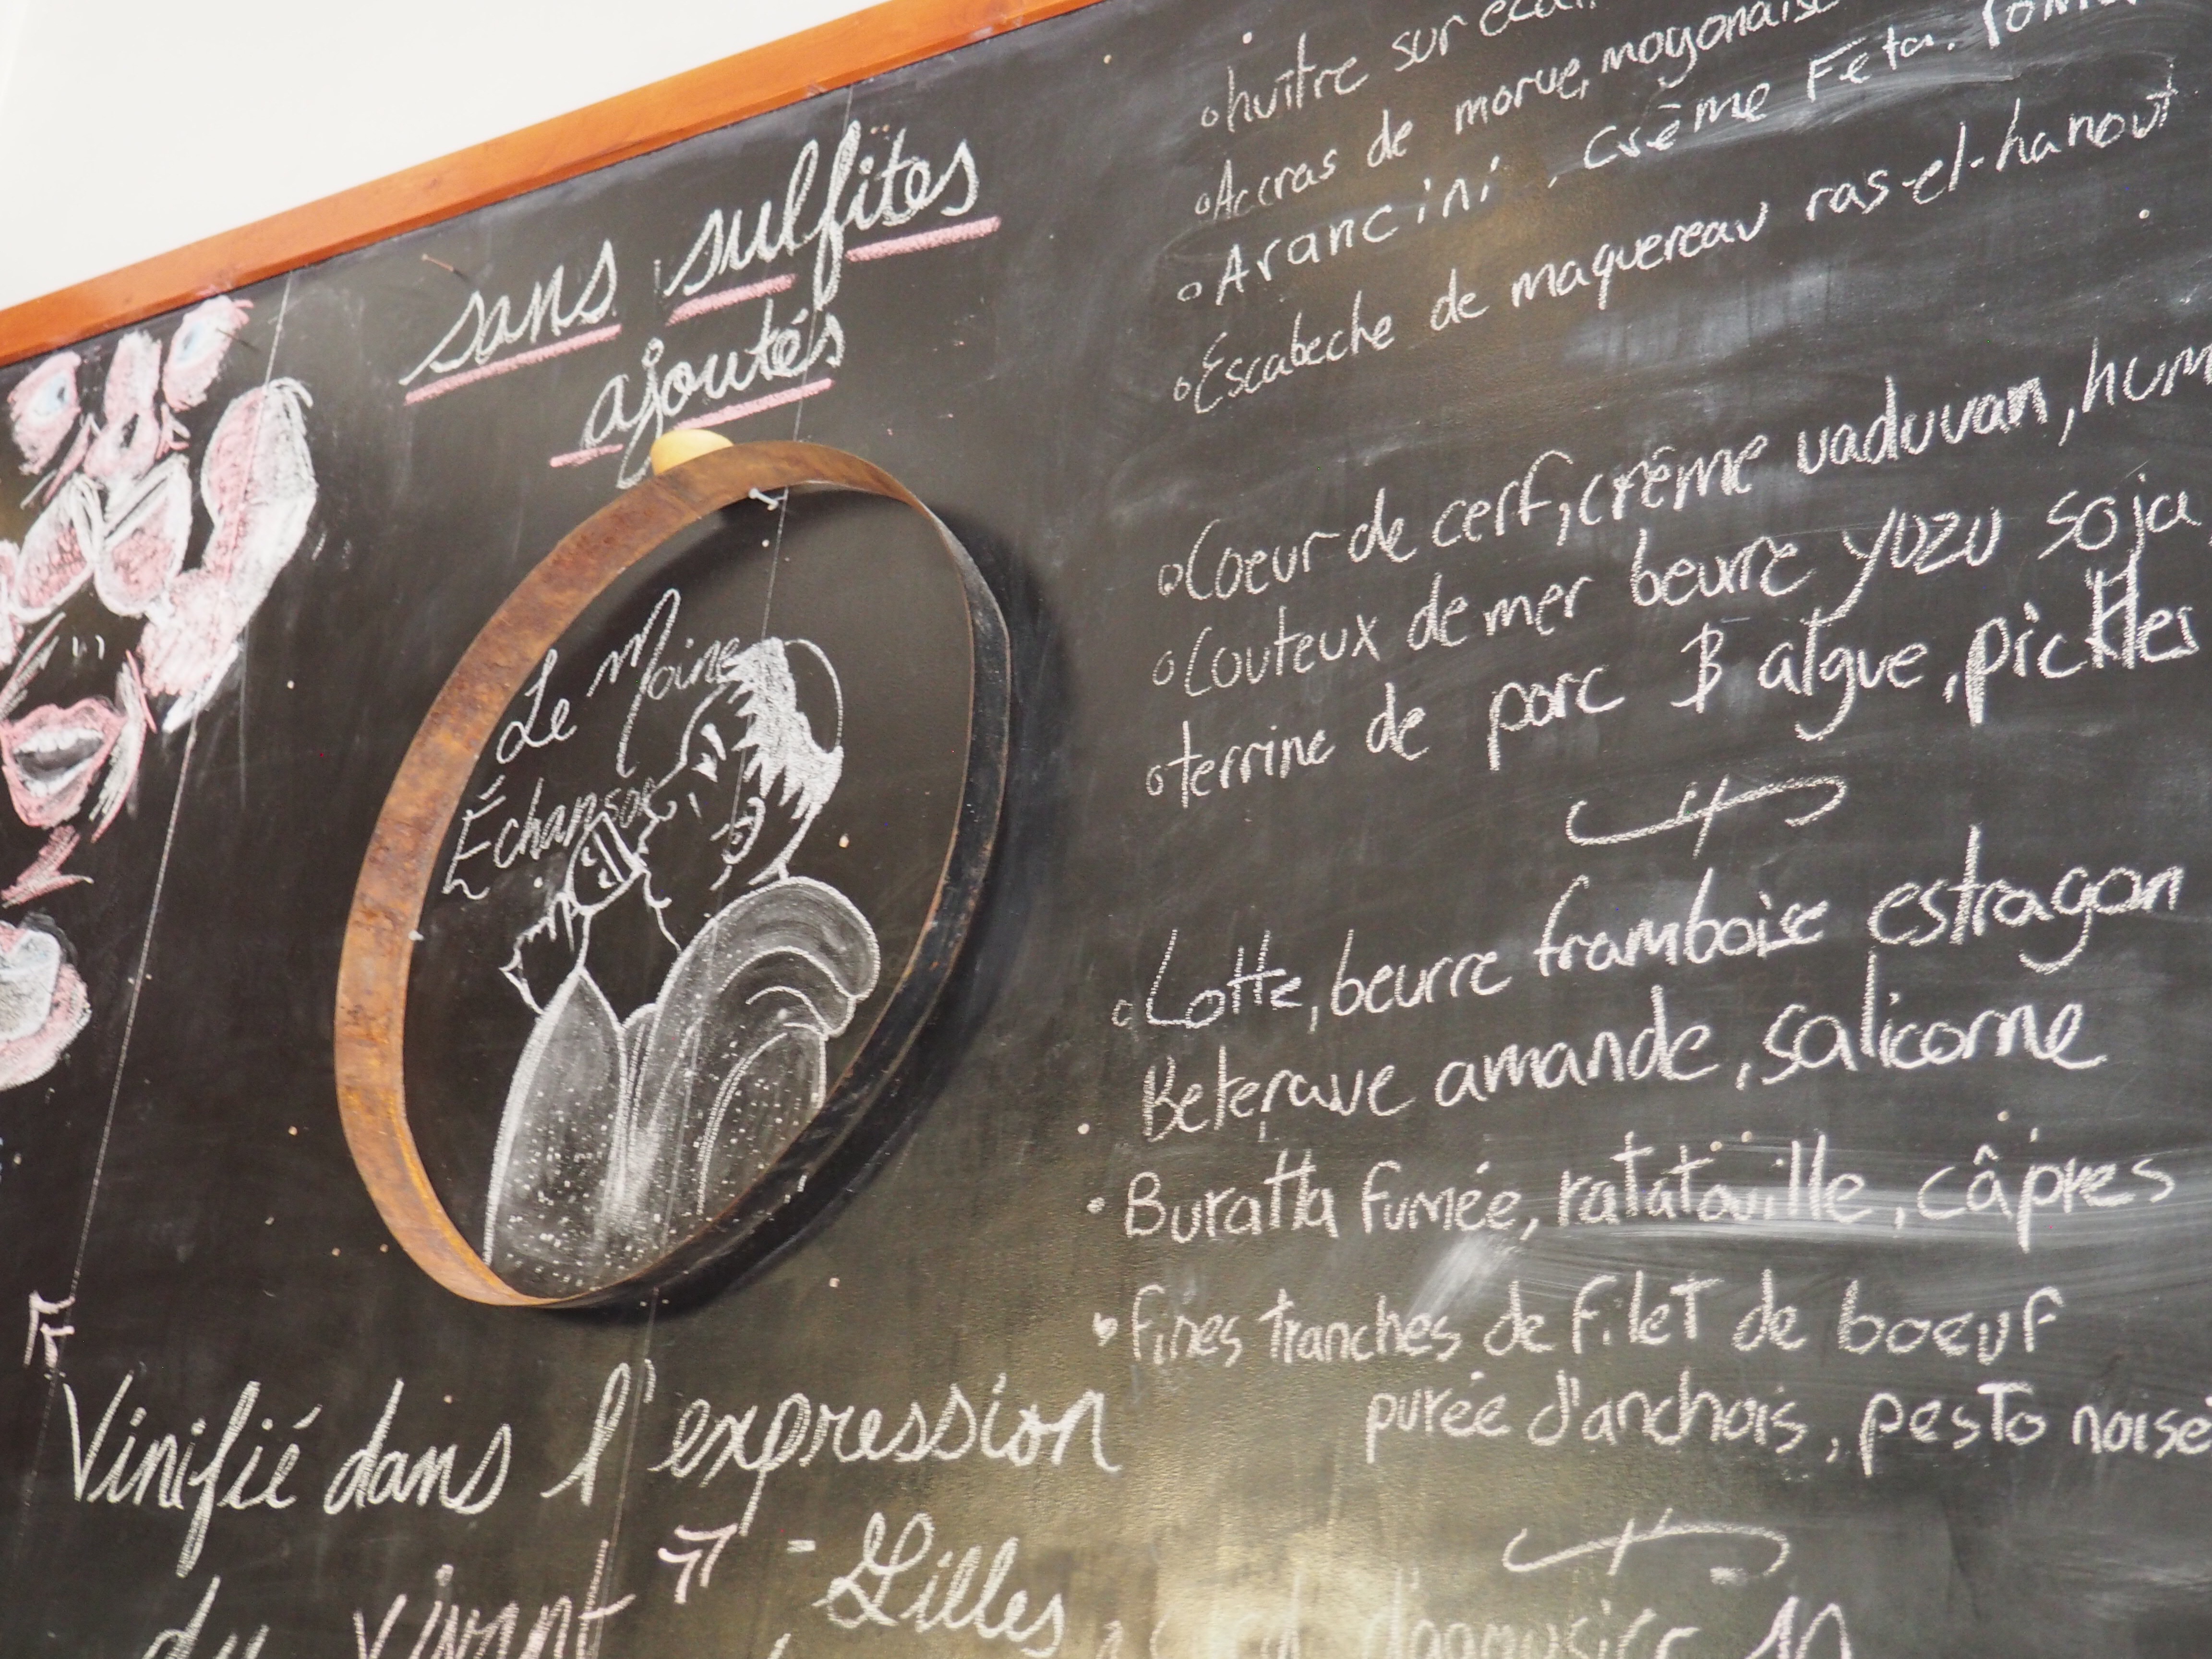 sans sulfites
ajoutés
Le Moine
Échanson
Vinifié dans l'expression
du vivant - Gilles
huître sur
Accras de morue, mayonaise
Arancini, crème Feta.
Escabeche de maquereau ras-el-hanout
Coeur de cerf, crème vaduvan,
Couteux de mer beurre yuzu soja,
terrine de porc & algue, pickles
Lotte, beurre framboise estragon
Beterave amande, salicorne
Buratta fumée, ratatouille, câpres
Fines tranches de filet de boeuf
purée d'anchois, pesto